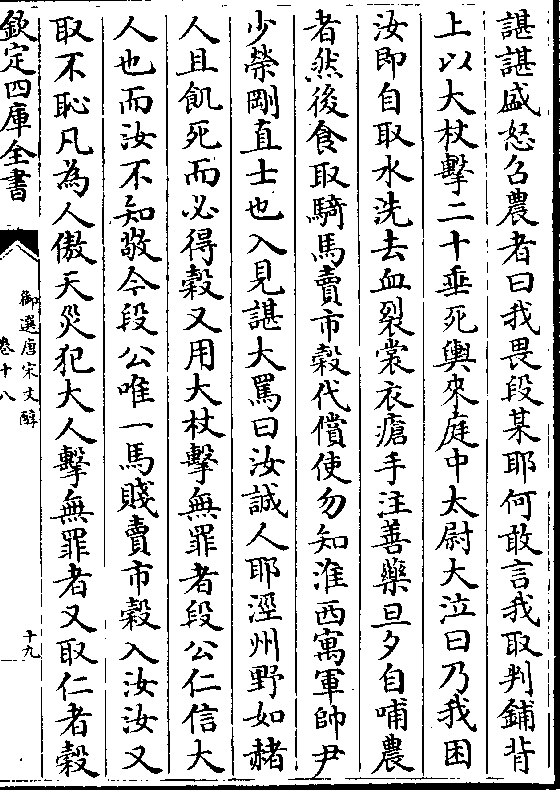 諶諶盛怒召農者曰我畏段某耶何敢言我取判鋪背
上以大杖擊二十垂死輿來庭中太尉大泣曰乃我困
汝即自取水洗去血裂裳衣瘡手注善藥旦夕自哺農
者然後食取騎馬賣市穀代償使勿知淮西寓軍帥尹
少榮剛直士也入見諶大罵曰汝誠人耶涇州野如赭
人且飢死而必得穀又用大杖擊無罪者段公仁信大
人也而汝不知敬今段公唯一馬賤賣市穀入汝汝又
取不恥凡為人傲天災犯大人擊無罪者又取仁者穀
欽定四庫全書
御選唐宋文醇
卷十八
十九